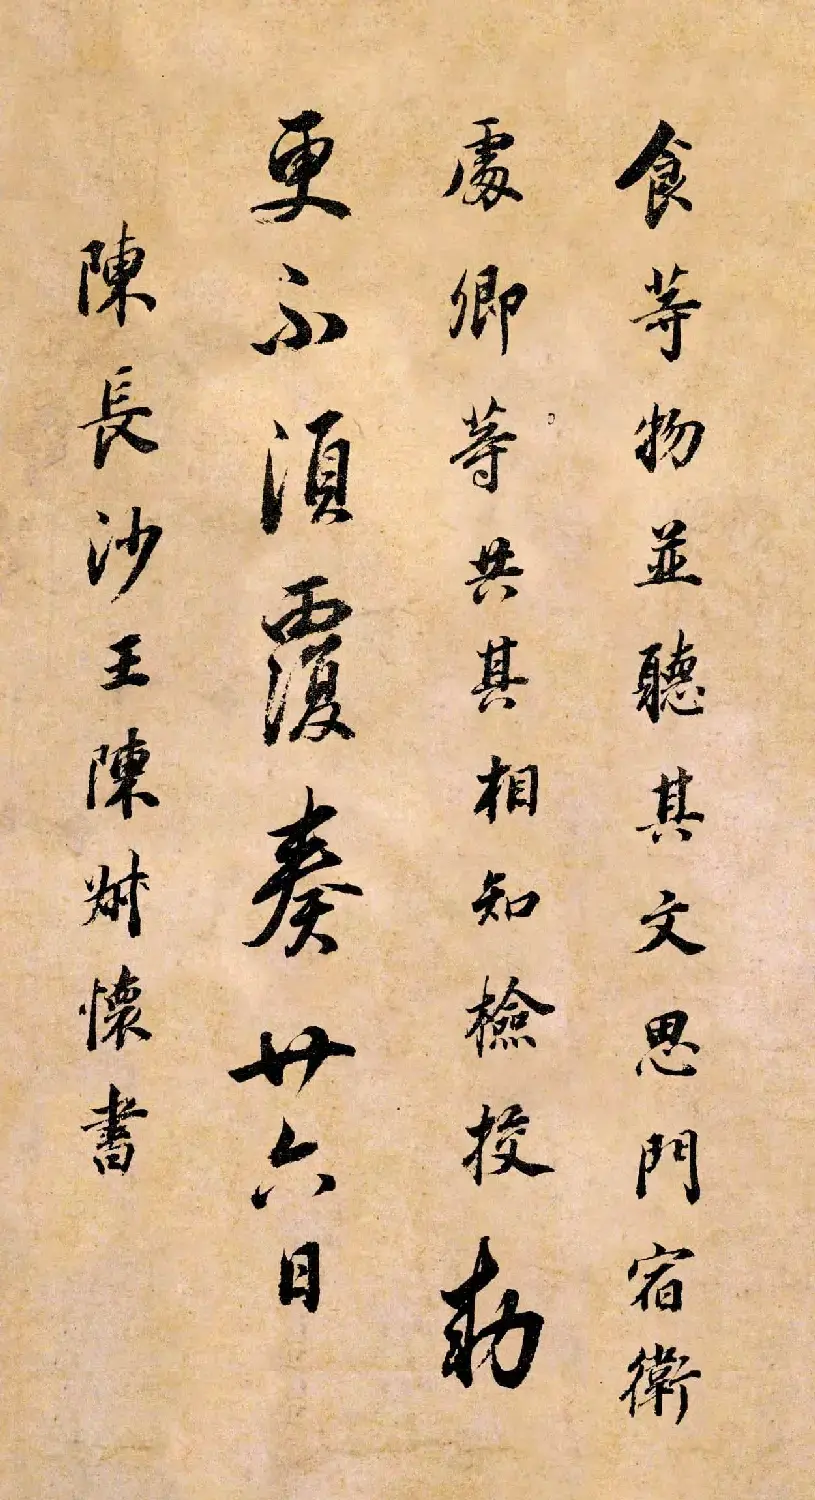 食等物並聽其文思門宿衛
處卿等共其相知檢校勅
更不須覆奏廿六日
陳長沙王陳叔懷書